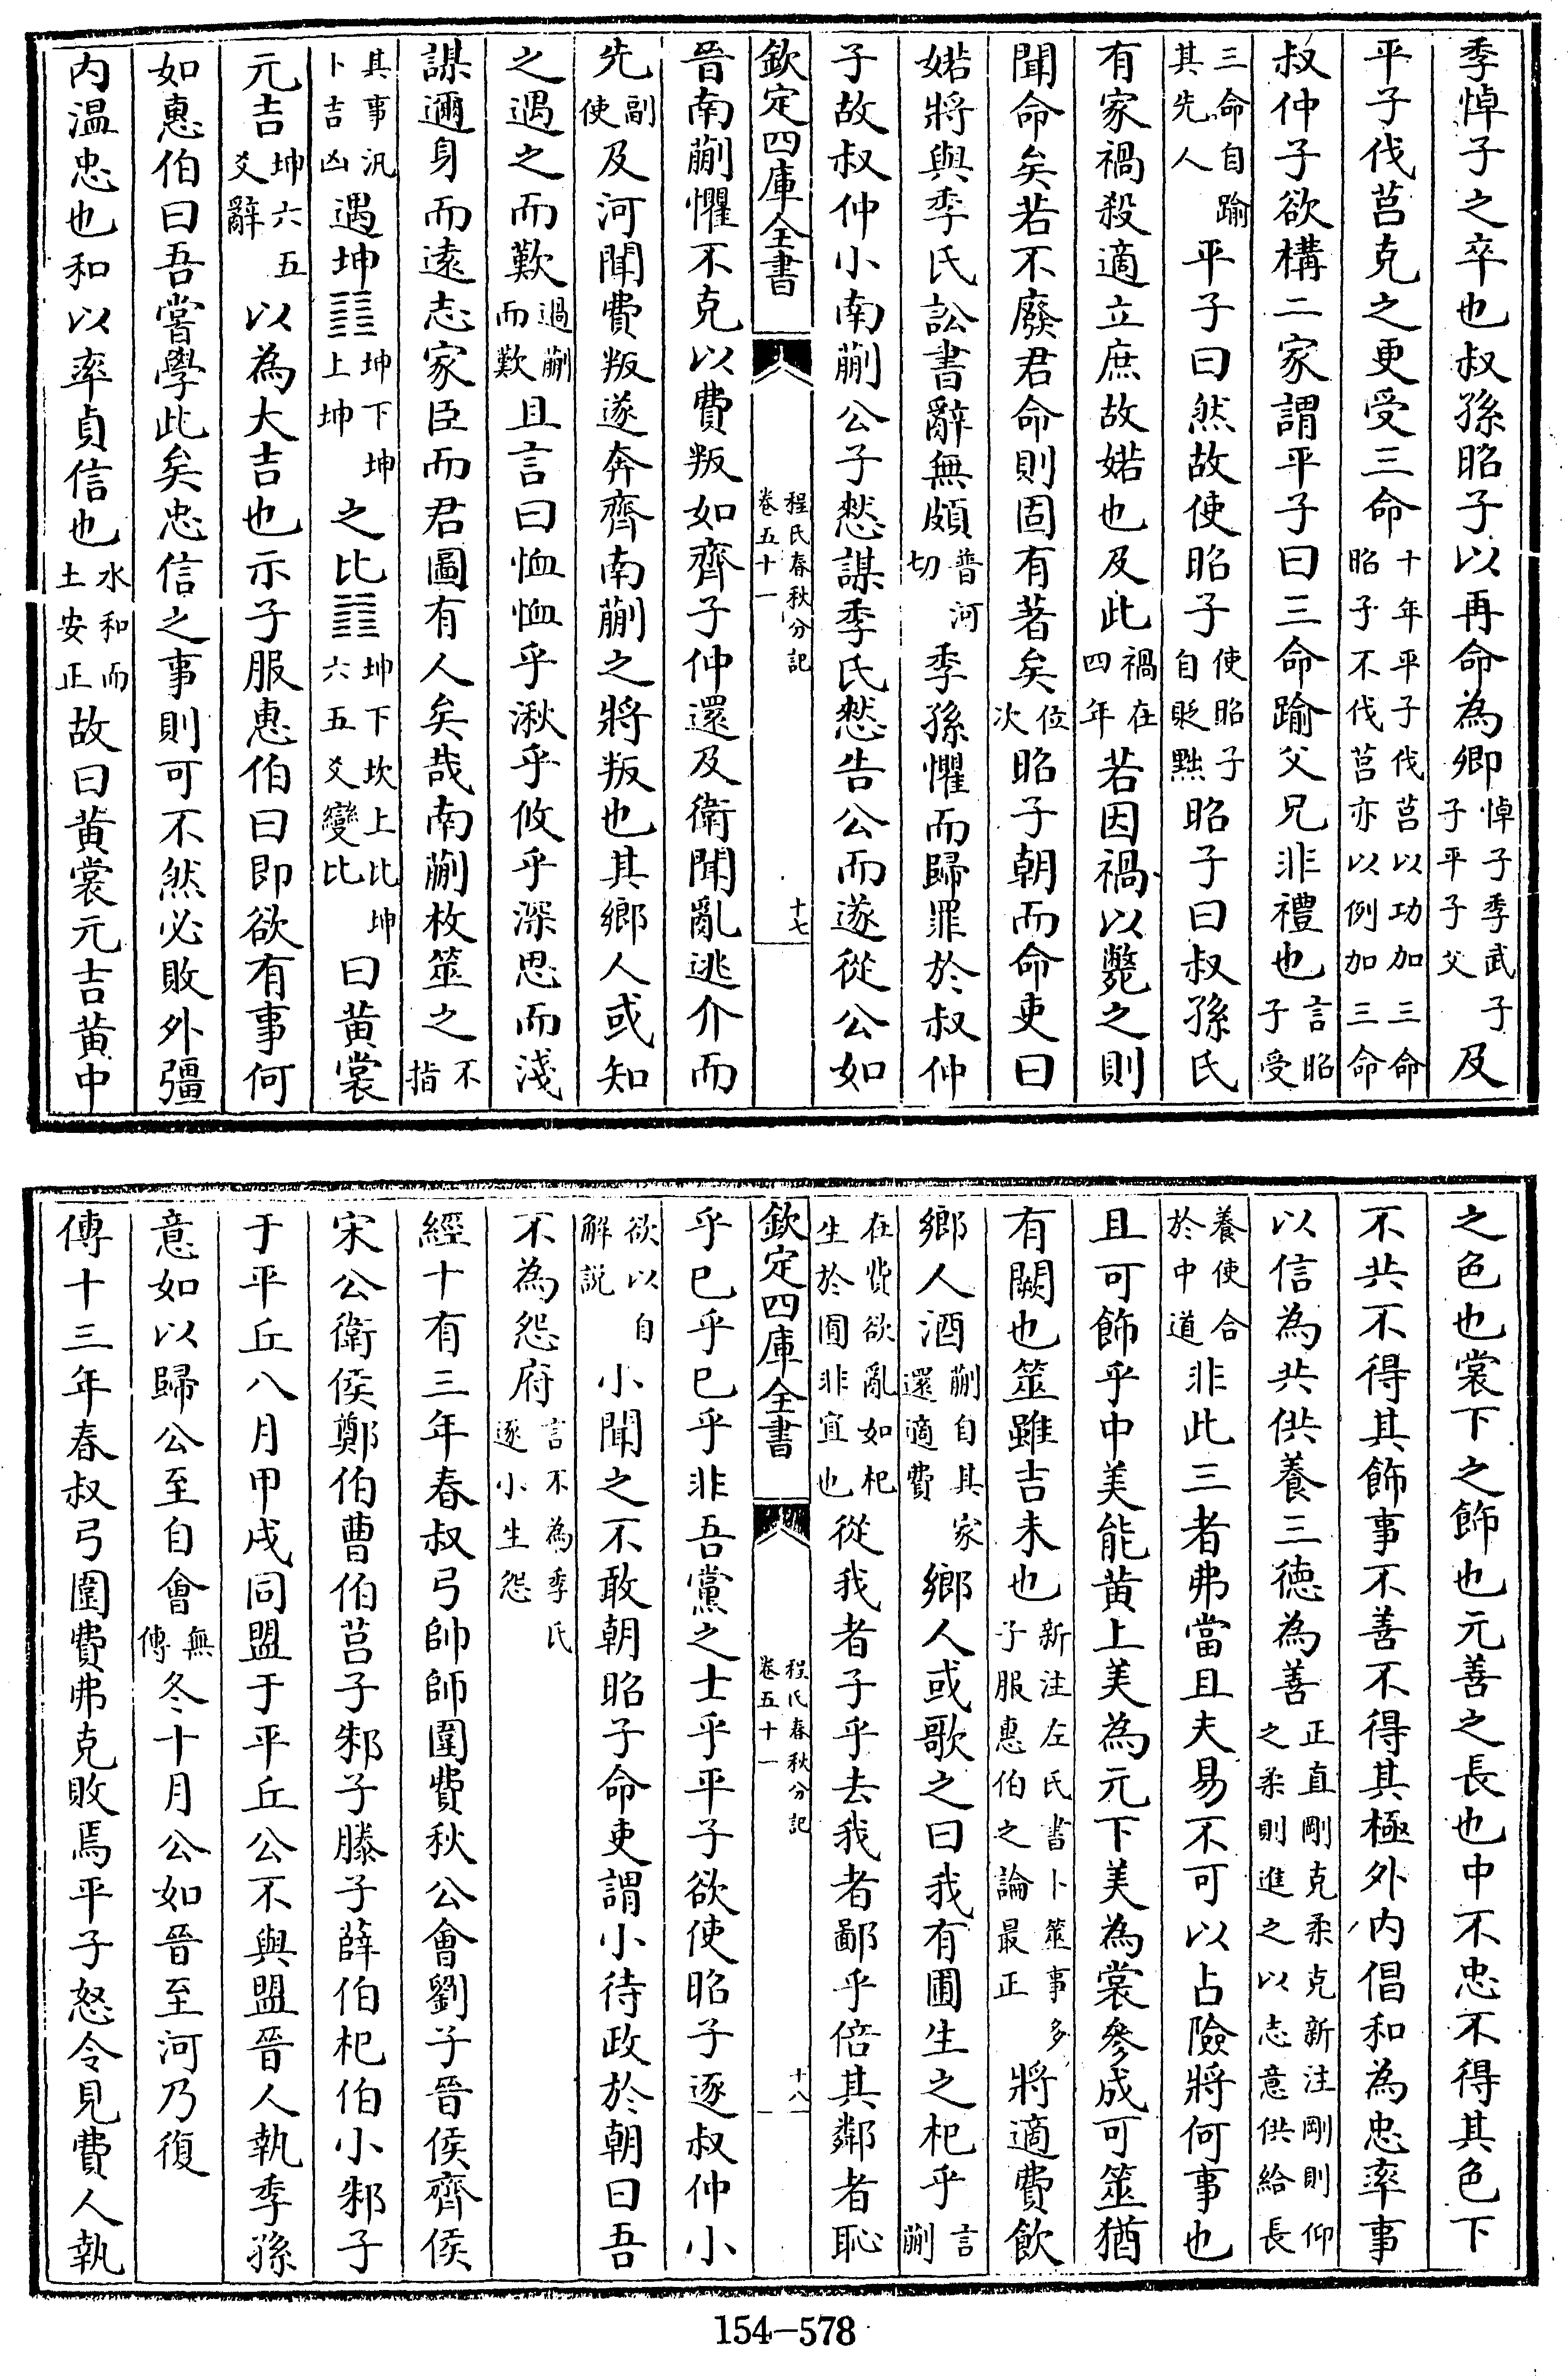 季悼子之卒也叔孫昭子以再命為卿悼子季武子子平子父及
平子伐莒克之更受三命十年平子伐莒以功加三命昭子不伐莒亦以例加三命
叔仲子欲構二家謂平子曰三命踰父兄非禮也言昭子受
三命自踰其先人平子曰然故使昭子使昭子自貶黜昭子曰叔孫氏
有家禍殺適立庶故婼也及此禍在四年若因禍以斃之則
聞命矣若不廢君命則固有著矣位次昭子朝而命吏曰
婼將與季氏訟書辭無頗普河切季孫懼而歸罪於叔仲
子故叔仲小南蒯公子憖謀季氏憖告公而遂從公如
欽定四庫全書 程氏春秋分記卷五十一 十七
晉南蒯懼不克以費叛如齊子仲還及衛聞亂逃介而
先副使及河聞費叛遂奔齊南蒯之將叛也其鄉人或知
之過之而歎過蒯而歎且言曰恤恤乎湫乎攸乎深思而淺
謀邇身而遠志家臣而君圖有人矣哉南蒯枚筮之不指
其事汎卜吉凶遇坤䷁坤下坤上坤之比䷇坤下坎上比坤六五爻變比曰黄裳
元吉坤六五爻辭以為大吉也示子服惠伯曰即欲有事何
如惠伯曰吾嘗學此矣忠信之事則可不然必敗外彊
内温忠也和以率貞信也水和而土安正故曰黄裳元吉黄中
之色也裳下之飾也元善之長也中不忠不得其色下
不共不得其飾事不善不得其極外内倡和為忠率事
以信為共供養三徳為善正直剛克柔克新注剛則仰之柔則進之以志意供給長
養使合於中道非此三者弗當且夫易不可以占險將何事也
且可飾乎中美能黄上美為元下美為裳參成可筮猶
有闕也筮雖吉未也新注左氏書卜筮事多子服惠伯之論最正將適費飲
鄉人酒蒯自其家還適費鄉人或歌之曰我有圃生之杞乎言蒯
在費欲亂如杞生於圃非宜也從我者子乎去我者鄙乎倍其鄰者恥
欽定四庫全書 程氏春秋分記卷五十一 十八
乎已乎已乎非吾黨之士乎平子欲使昭子逐叔仲小
欲以自解説小聞之不敢朝昭子命吏謂小待政於朝曰吾
不為怨府言不為季氏逐小生怨
經十有三年春叔弓帥師圍費秋公會劉子晉侯齊侯
宋公衛侯鄭伯曹伯莒子邾子滕子薛伯杞伯小邾子
于平丘八月甲戌同盟于平丘公不與盟晉人執季孫
意如以歸公至自會無傳冬十月公如晉至河乃復
傳十三年春叔弓圍費弗克敗焉平子怒令見費人執
154-578